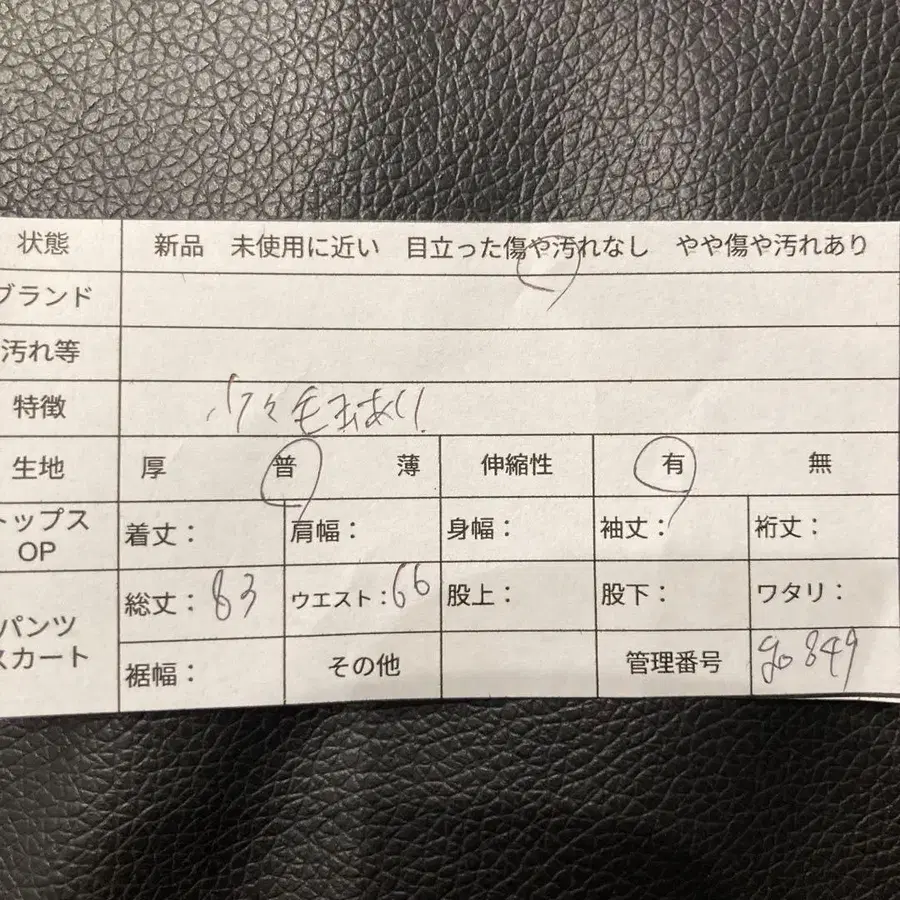 状態 新品 未使用に近い 目立った傷や汚れなし やや傷や汚れあり
ブランド
汚れ等
特徴 少々毛玉あり
生地 厚 普 薄 伸縮性 有 無
トップス OP 着丈： 肩幅： 身幅： 袖丈： 裄丈：
パンツ スカート 総丈：83 ウエスト：66 股上： 股下： ワタリ：
裾幅： その他 管理番号 go849